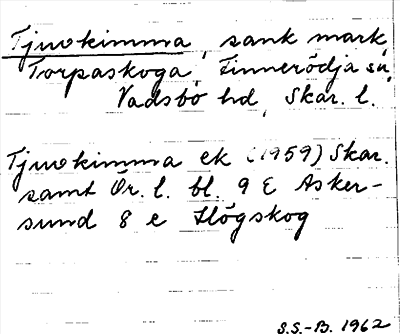 Tjuvkimma, sank mark,
Torpaskoga, Finnerödja sn,
Vadsbo hd, Skar. l.
Tjuvkimma ek (1959) Skar.
samt Ör. l. bl. 9 E Asker-
sund 8 e Högskog
S.S.-B. 1962